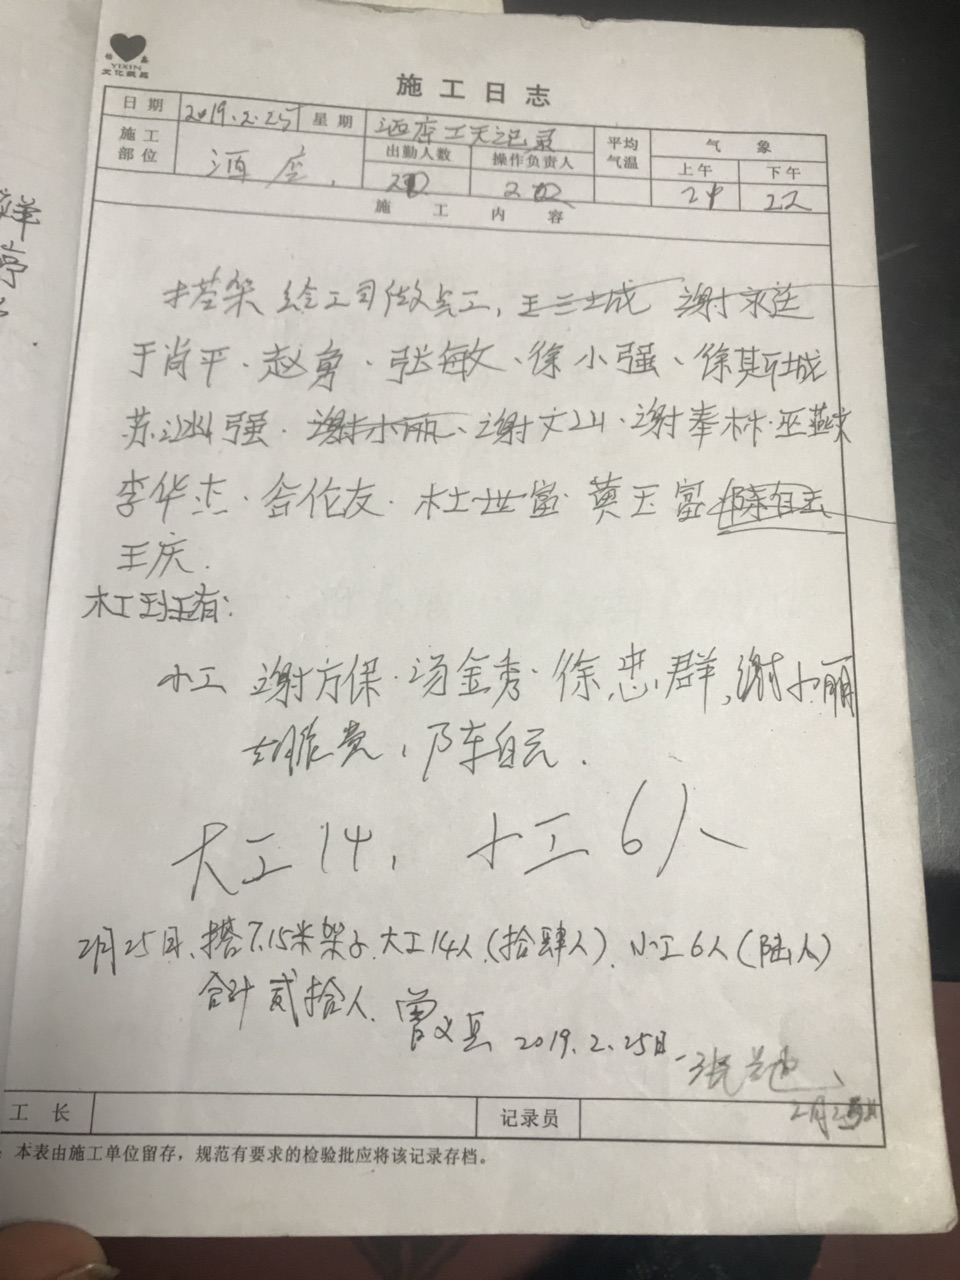 YIXIN
施工日志
日期 2019.2.25 星期 酒库工天记录
施工部位 酒库. 出勤人数 操作负责人 平均气温 气象
上午 下午
施工内容
搭架给工司做点工, 王三士成 谢永廷
于肖平、赵勇、张敏、徐小强、徐其斯城
苏冰强、谢小丽、谢文山、谢奉林、巫燕文
李华杰、佘伦友、杜世富、黄玉富 陈自云
王庆.
木工班有:
小工 谢方保、汤金秀、徐忠群, 谢小丽
胡能贵、陈自云.
大工14, 小工6人
2月25日、搭7.15米架子大工14人(拾肆人)、小工6人(陆人)
合计贰拾人. 曾义县 2019.2.25日
工长 记录员
本表由施工单位留存,规范有要求的检验批应将该记录存档。